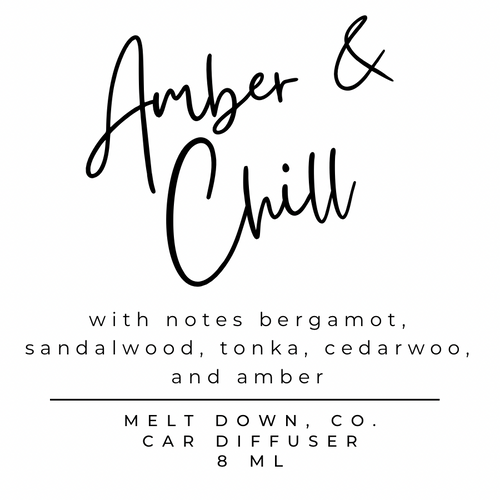 Amber &
Chill
with notes bergamot,
sandalwood, tonka, cedarwoo,
and amber
MELT DOWN, CO.
CAR DIFFUSER
8 ML